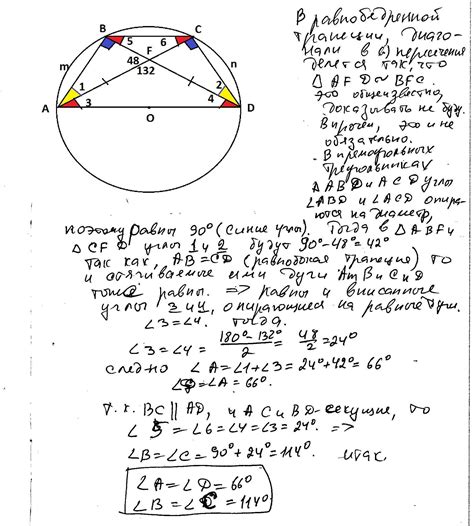 B
C
5
6
F
m
n
48
132
1
2
A
3
4
D
O
В равнобедренной
трапеции, диаго-
нали в (·) пересечения
делятся так, что
△ AFD ∾ BFC.
это общеизвестно,
доказывать не буду.
Впрочем, это и не
обязательно.
В прямоугольных
треугольниках
△ ABD и ACD углы
∠ABD и ∠ACD опира-
ются на диаметр,
поэтому равны 90° (синие углы). Тогда в △ ABF и
△ CFD углы 1 и 2 будут 90°-48° = 42°
так как, AB = CD (равнобокая трапеция) то
и стягиваемые ими дуги AmB и CnD
тоже равны. => равны и вписанные
углы 3 и 4, опирающиеся на равные дуги.
∠3 = ∠4. тогда.
∠3 = ∠4 = 180°-132° / 2 = 48 / 2 = 24°
следно ∠A = ∠1+∠3 = 24°+42° = 66°
∠D = ∠A = 66°.
т.к. BC || AD, и AC и BD - секущие, то
∠5 = ∠6 = ∠4 = ∠3 = 24°. =>
∠B = ∠C = 90° + 24° = 114°. итак
∠A = ∠D = 66°
∠B = ∠C = 114°